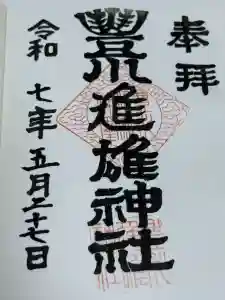 奉拝
豊川進雄神社
令和七年五月二十七日